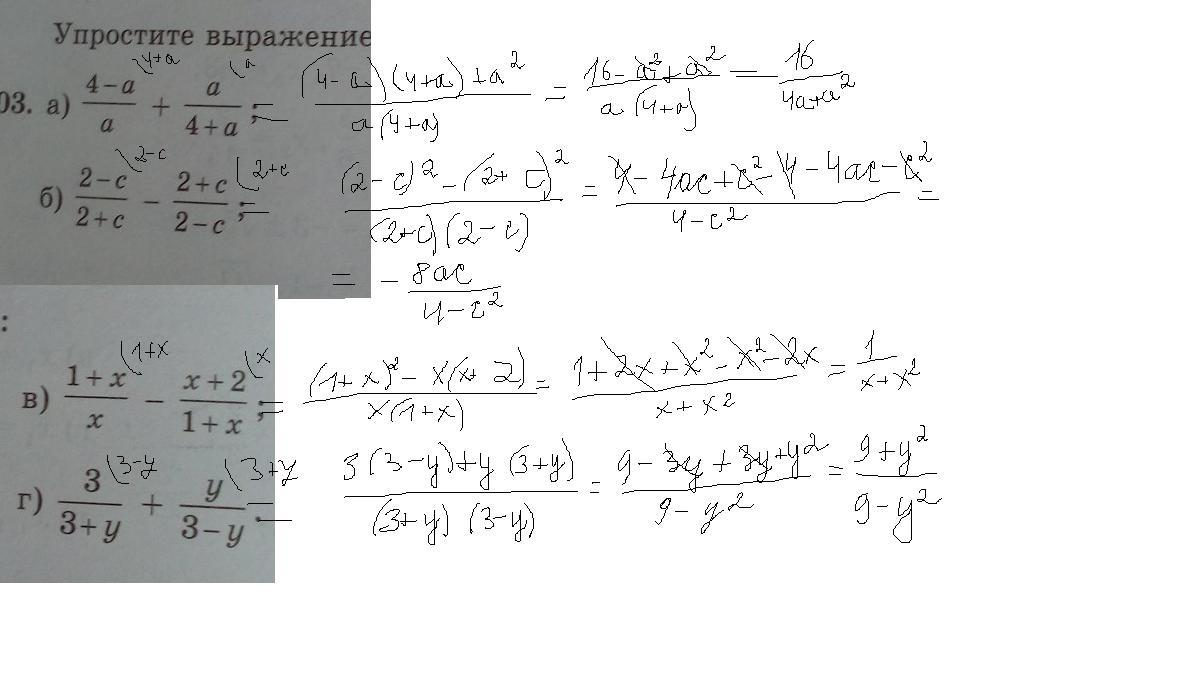 Упростите выражение
03. а) (4-a)/a \4+a + a/(4+a) \a ; = ((4-a)(4+a)+a²)/(a(4+a)) = (16-a²+a²)/(a(4+a)) = 16/(4a+a²)
б) (2-c)/(2+c) \2-c - (2+c)/(2-c) \2+c ; = ((2-c)²-(2+c)²)/((2+c)(2-c)) = (4-4ac+c²-4-4ac-c²)/(4-c²) =
= - 8ac/(4-c²)
:
в) (1+x)/x \1+x - (x+2)/(1+x) \x ; = ((1+x)²-x(x+2))/(x(1+x)) = (1+2x+x²-x²-2x)/(x+x²) = 1/(x+x²)
г) 3/(3+y) \3-y + y/(3-y) \3+y ; = (3(3-y)+y(3+y))/((3+y)(3-y)) = (9-3y+3y+y²)/(9-y²) = (9+y²)/(9-y²)